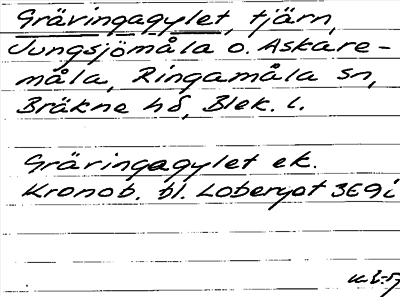 Gräringagylet, tjärn,
Jungsjömåla o. Askare-
måla, Ringamåla sn,
Bräkne hd, Blek. l.
Gräringagylet ek.
Kronob. bl. Loberyot 3E9i